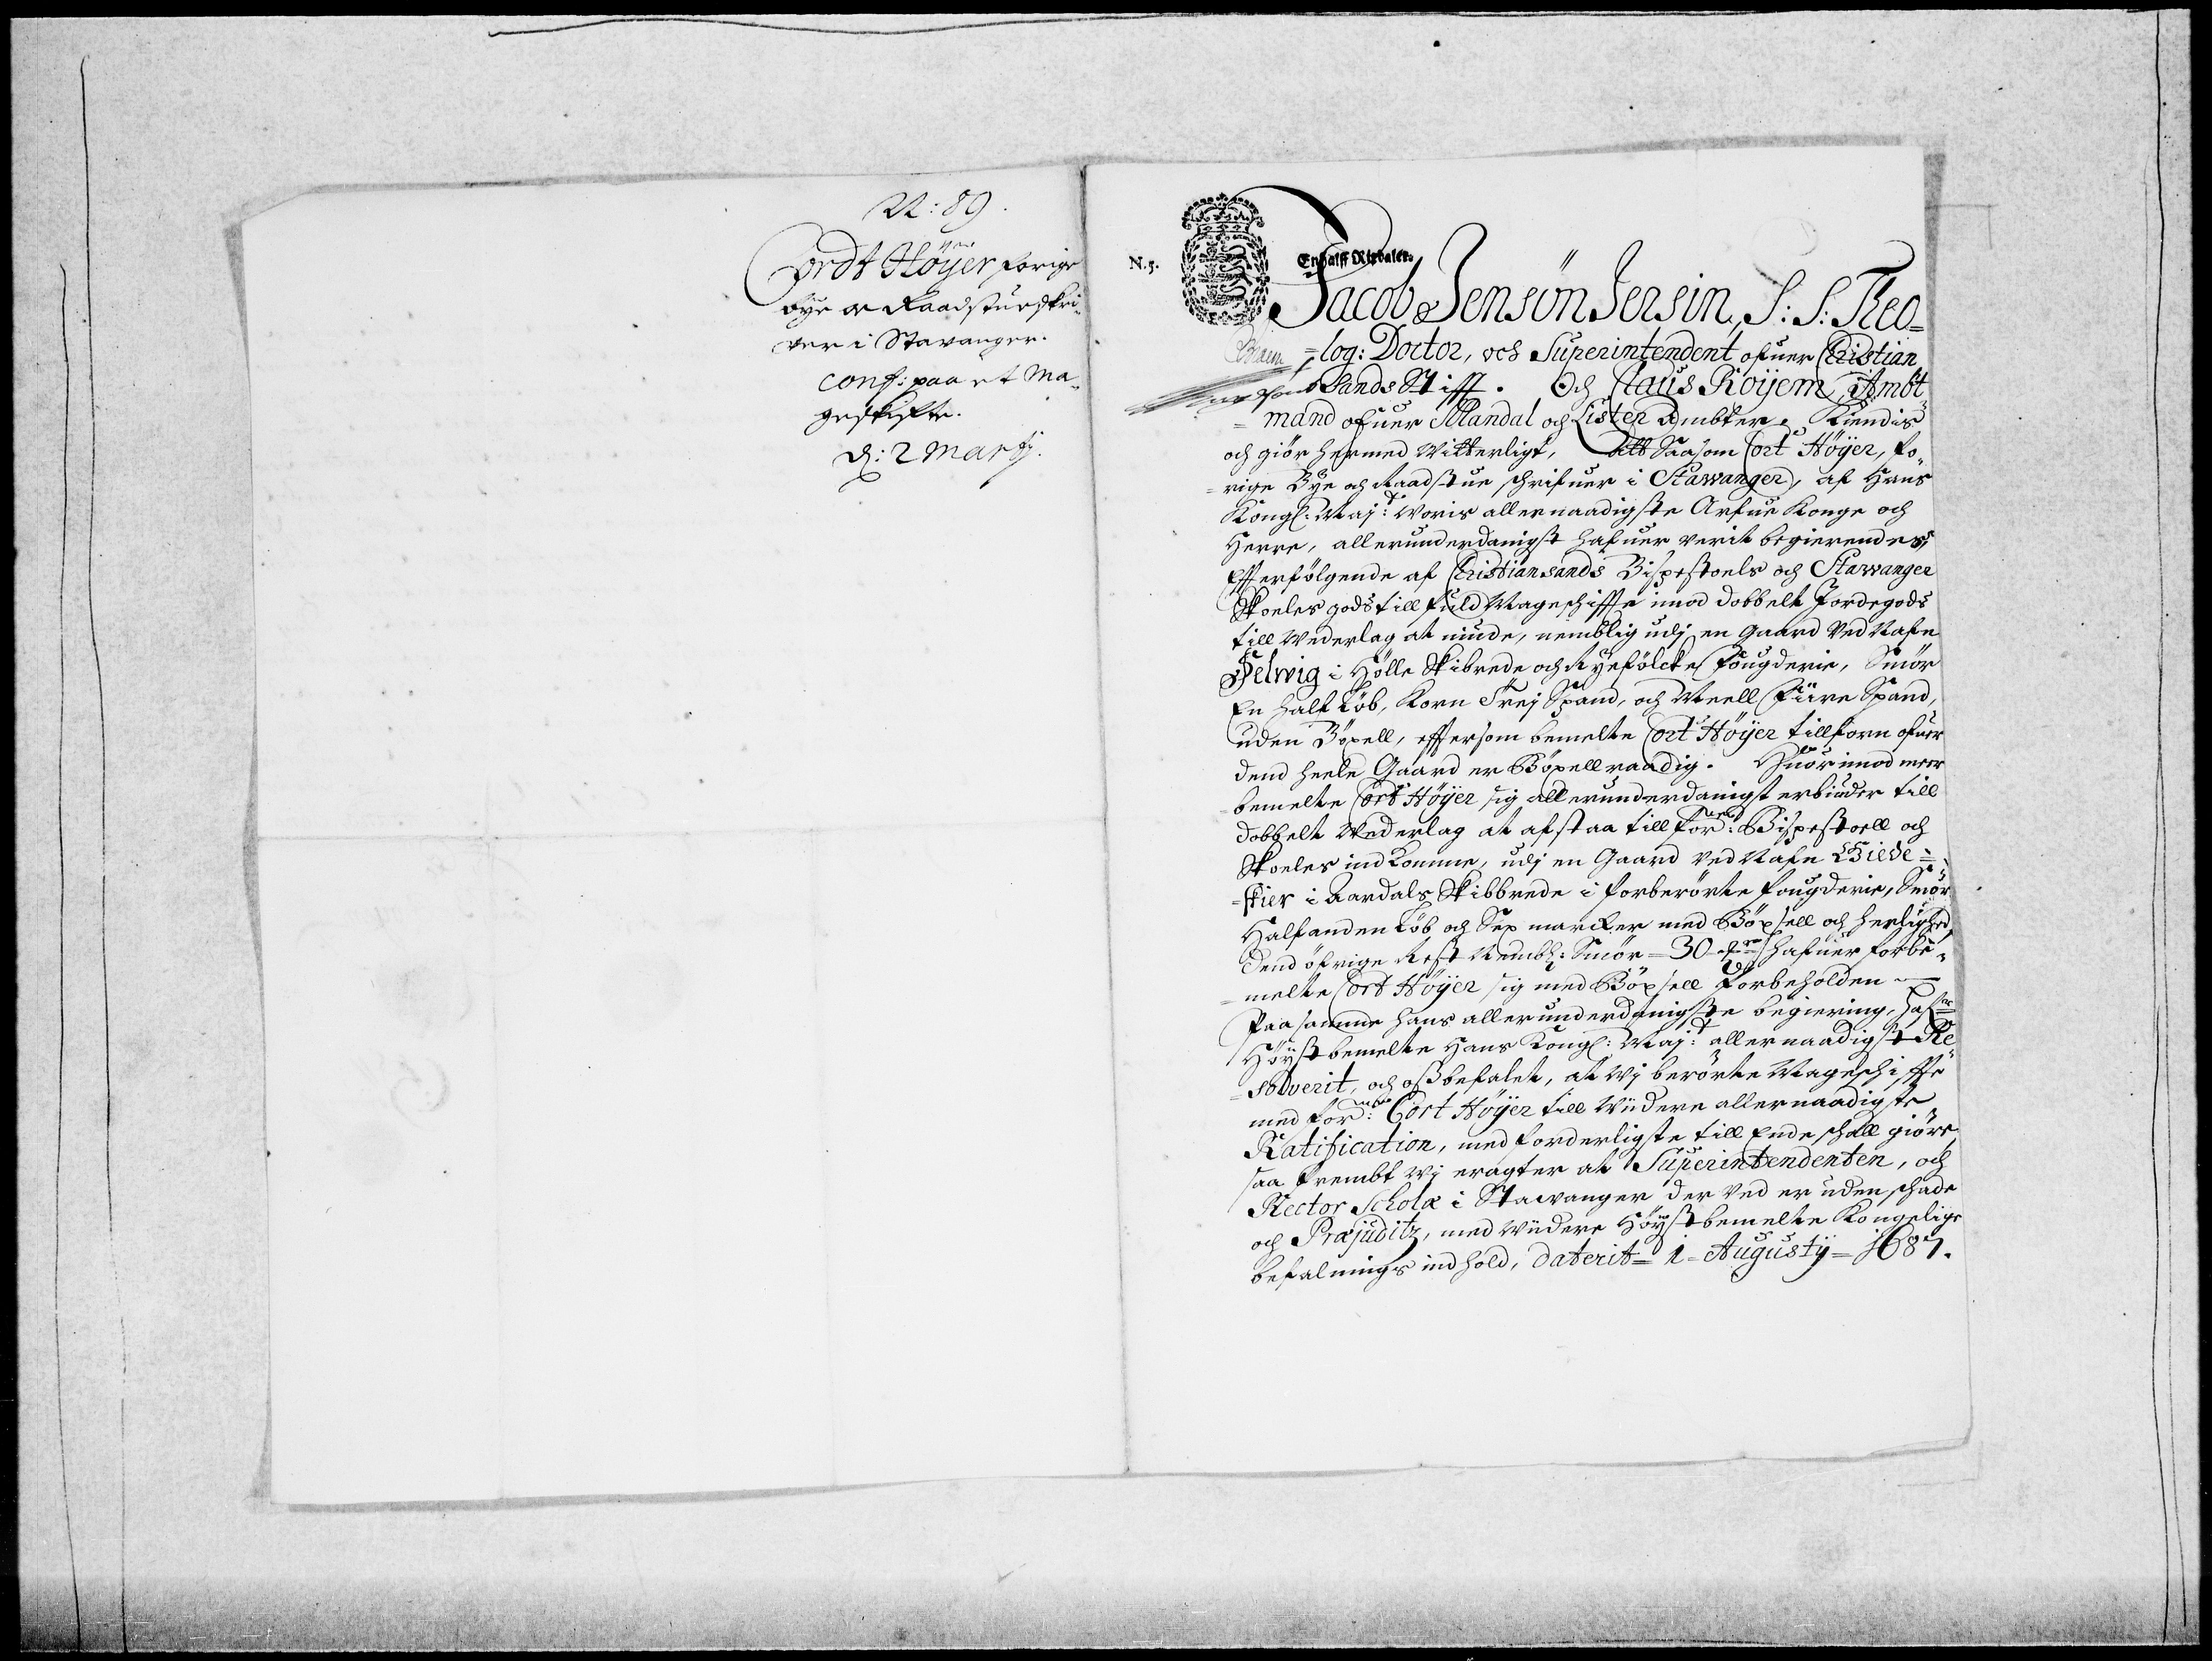 N: 89.
Cordt Höÿer forige
bye og Raadstuedskri-
ver i Stavanger.
conf: paa et Ma-
geskifte.
d: 2 Martij.
N.5.
En halff Rixdaler.
Jacob Jensön Jersin, S: S: Theo=
=log: Doctor, och Superintendent ofuer Christian
sands Stifft. Och Claus Röÿem, Ambt
=mand ofuer Mandal och Lister Ambter, Kiendis
och giör hermed Witterligt, Att Saasom Cort Höÿer, fo-
=rige Bye och Raadstue schrifuer i Stawanger, af Hans
Kongl: Maj:t Woris allernaadigste Arfue Konge och
Herre, allerunderdanigst hafuer verit begierendes,
Efterfölgende af Christiansands Bispestoels och Stawanger
Skoeles gods till fuld Mageschiffte imod dobbelt Jordegods
till Wederlag at niude, nemblig udj en Gaard Ved Nafn
Selwig i Hölle Skibrede och Ryefölcke Fougderie, Smör
En half Löb, Korn Trej Spand, och Meell Fiire Spand,
uden Böxell, effersom bemelte Cort Höÿer tillforn ofuer
dend heele Gaard er Böxell raadig. Huorimod meer
=bemelte Cort Höÿer sig allerunderdanigst erbiuder till
dobbelt Wederlag at afstaa till for:ne Bispestoell och
Skoeles indkomme, udj en Gaard ved Nafn Giede=
=skier i Aardals Skibbrede i forberörte fougderie, Smör
Halfanden Löb och Sex marcker med Böxsell och herlighed,
Dend öfrige Rest Nembl: Smör = 30 hafuer forbe-
=melte Cort Höÿer sig med Böxsell forbeholden
Paa samme hans allerunderdanigste begiering, hafuer
Höÿstbemelte Hans Kongl: Maj:t allernaadigst Re
=solverit, och oss befalet, at Wj berörte Mageschiffte
med for:ne Cort Höÿer till Wiidere allernaadigste
Ratification, med forderligste till Ende schall giöre,
saa frembt wj eragter at Superintendenten, och
Rector Scholæ i Stawanger der ved er uden schade
och Præjuditz, med Wiidere Höÿstbemelte Kongelige
befalnings indhold, daterit = 1 = Augustij = 1687.